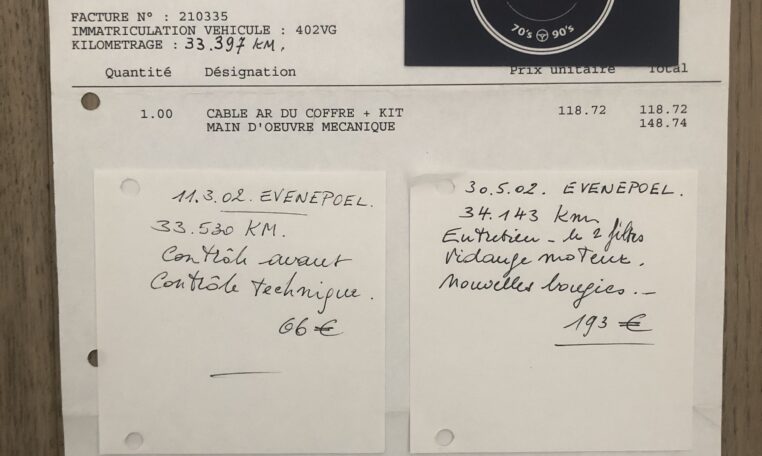 FACTURE N° : 210335
IMMATRICULATION VEHICULE : 402VG
KILOMETRAGE : 33.397 KM.
70's 90's
Quantité Désignation Prix unitaire Total
1.00 CABLE AR DU COFFRE + KIT 118.72 118.72
MAIN D'OEUVRE MECANIQUE 148.74
11.3.02. EVENEPOEL.
33.530 KM.
Contrôle avant
Contrôle technique.
66 €
30.5.02. EVENEPOEL.
34.143 Km
Entretien - les 2 filtres
Vidange moteur.
Nouvelles bougies.-
193 €